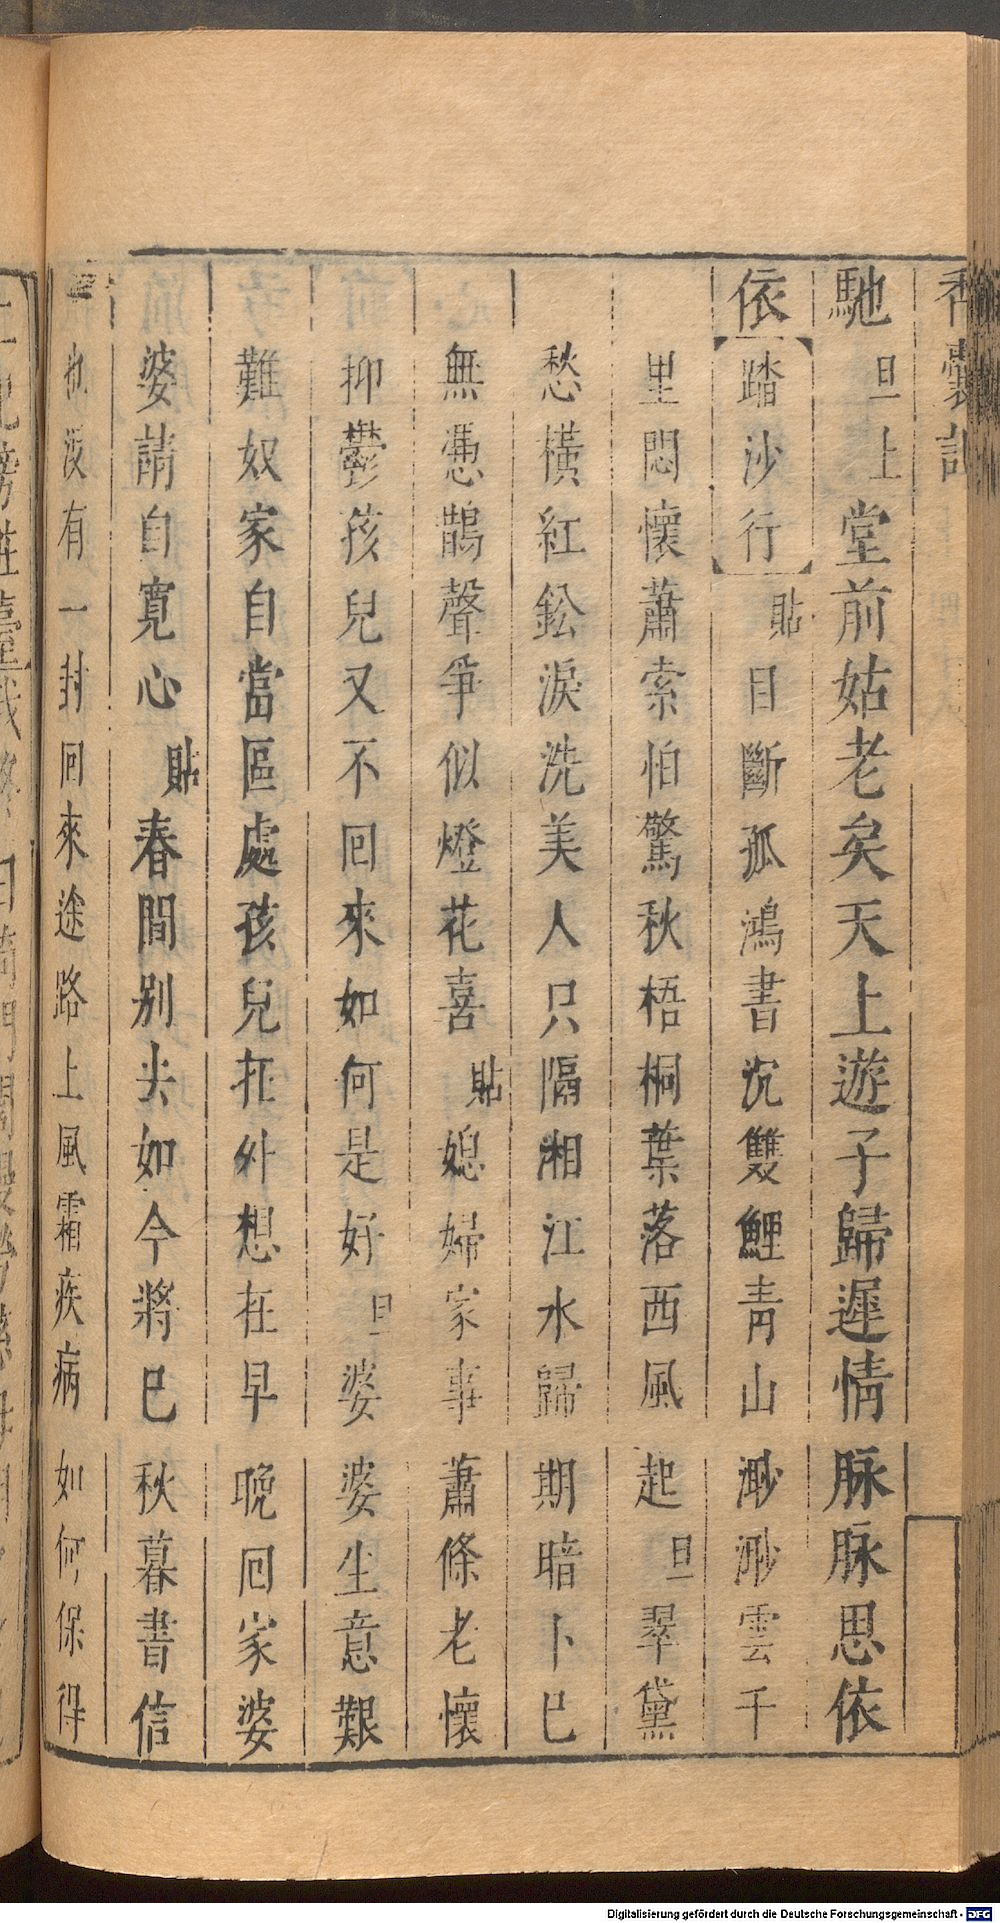 香囊記
馳旦上堂前姑老矣天上遊子歸遲情脉脉思依
依踏沙行貼目斷孤鴻書沉雙鯉青山渺渺雲千
里悶懷蕭索怕驚秋梧桐葉落西風起旦翠黛
愁橫紅鈆淚洗美人只隔湘江水歸期暗卜巳
無憑鵲聲爭似燈花喜貼媳婦家事蕭條老懷
抑鬱孩兒又不回來如何是好旦婆婆生意艱
難奴家自當區處孩兒在外想在早晚回家婆
婆請自寬心貼春間別去如今將巳秋暮書信
也沒有一封回來途路上風霜疾病如何保得
Digitalisierung gefördert durch die Deutsche Forschungsgemeinschaft - DFG